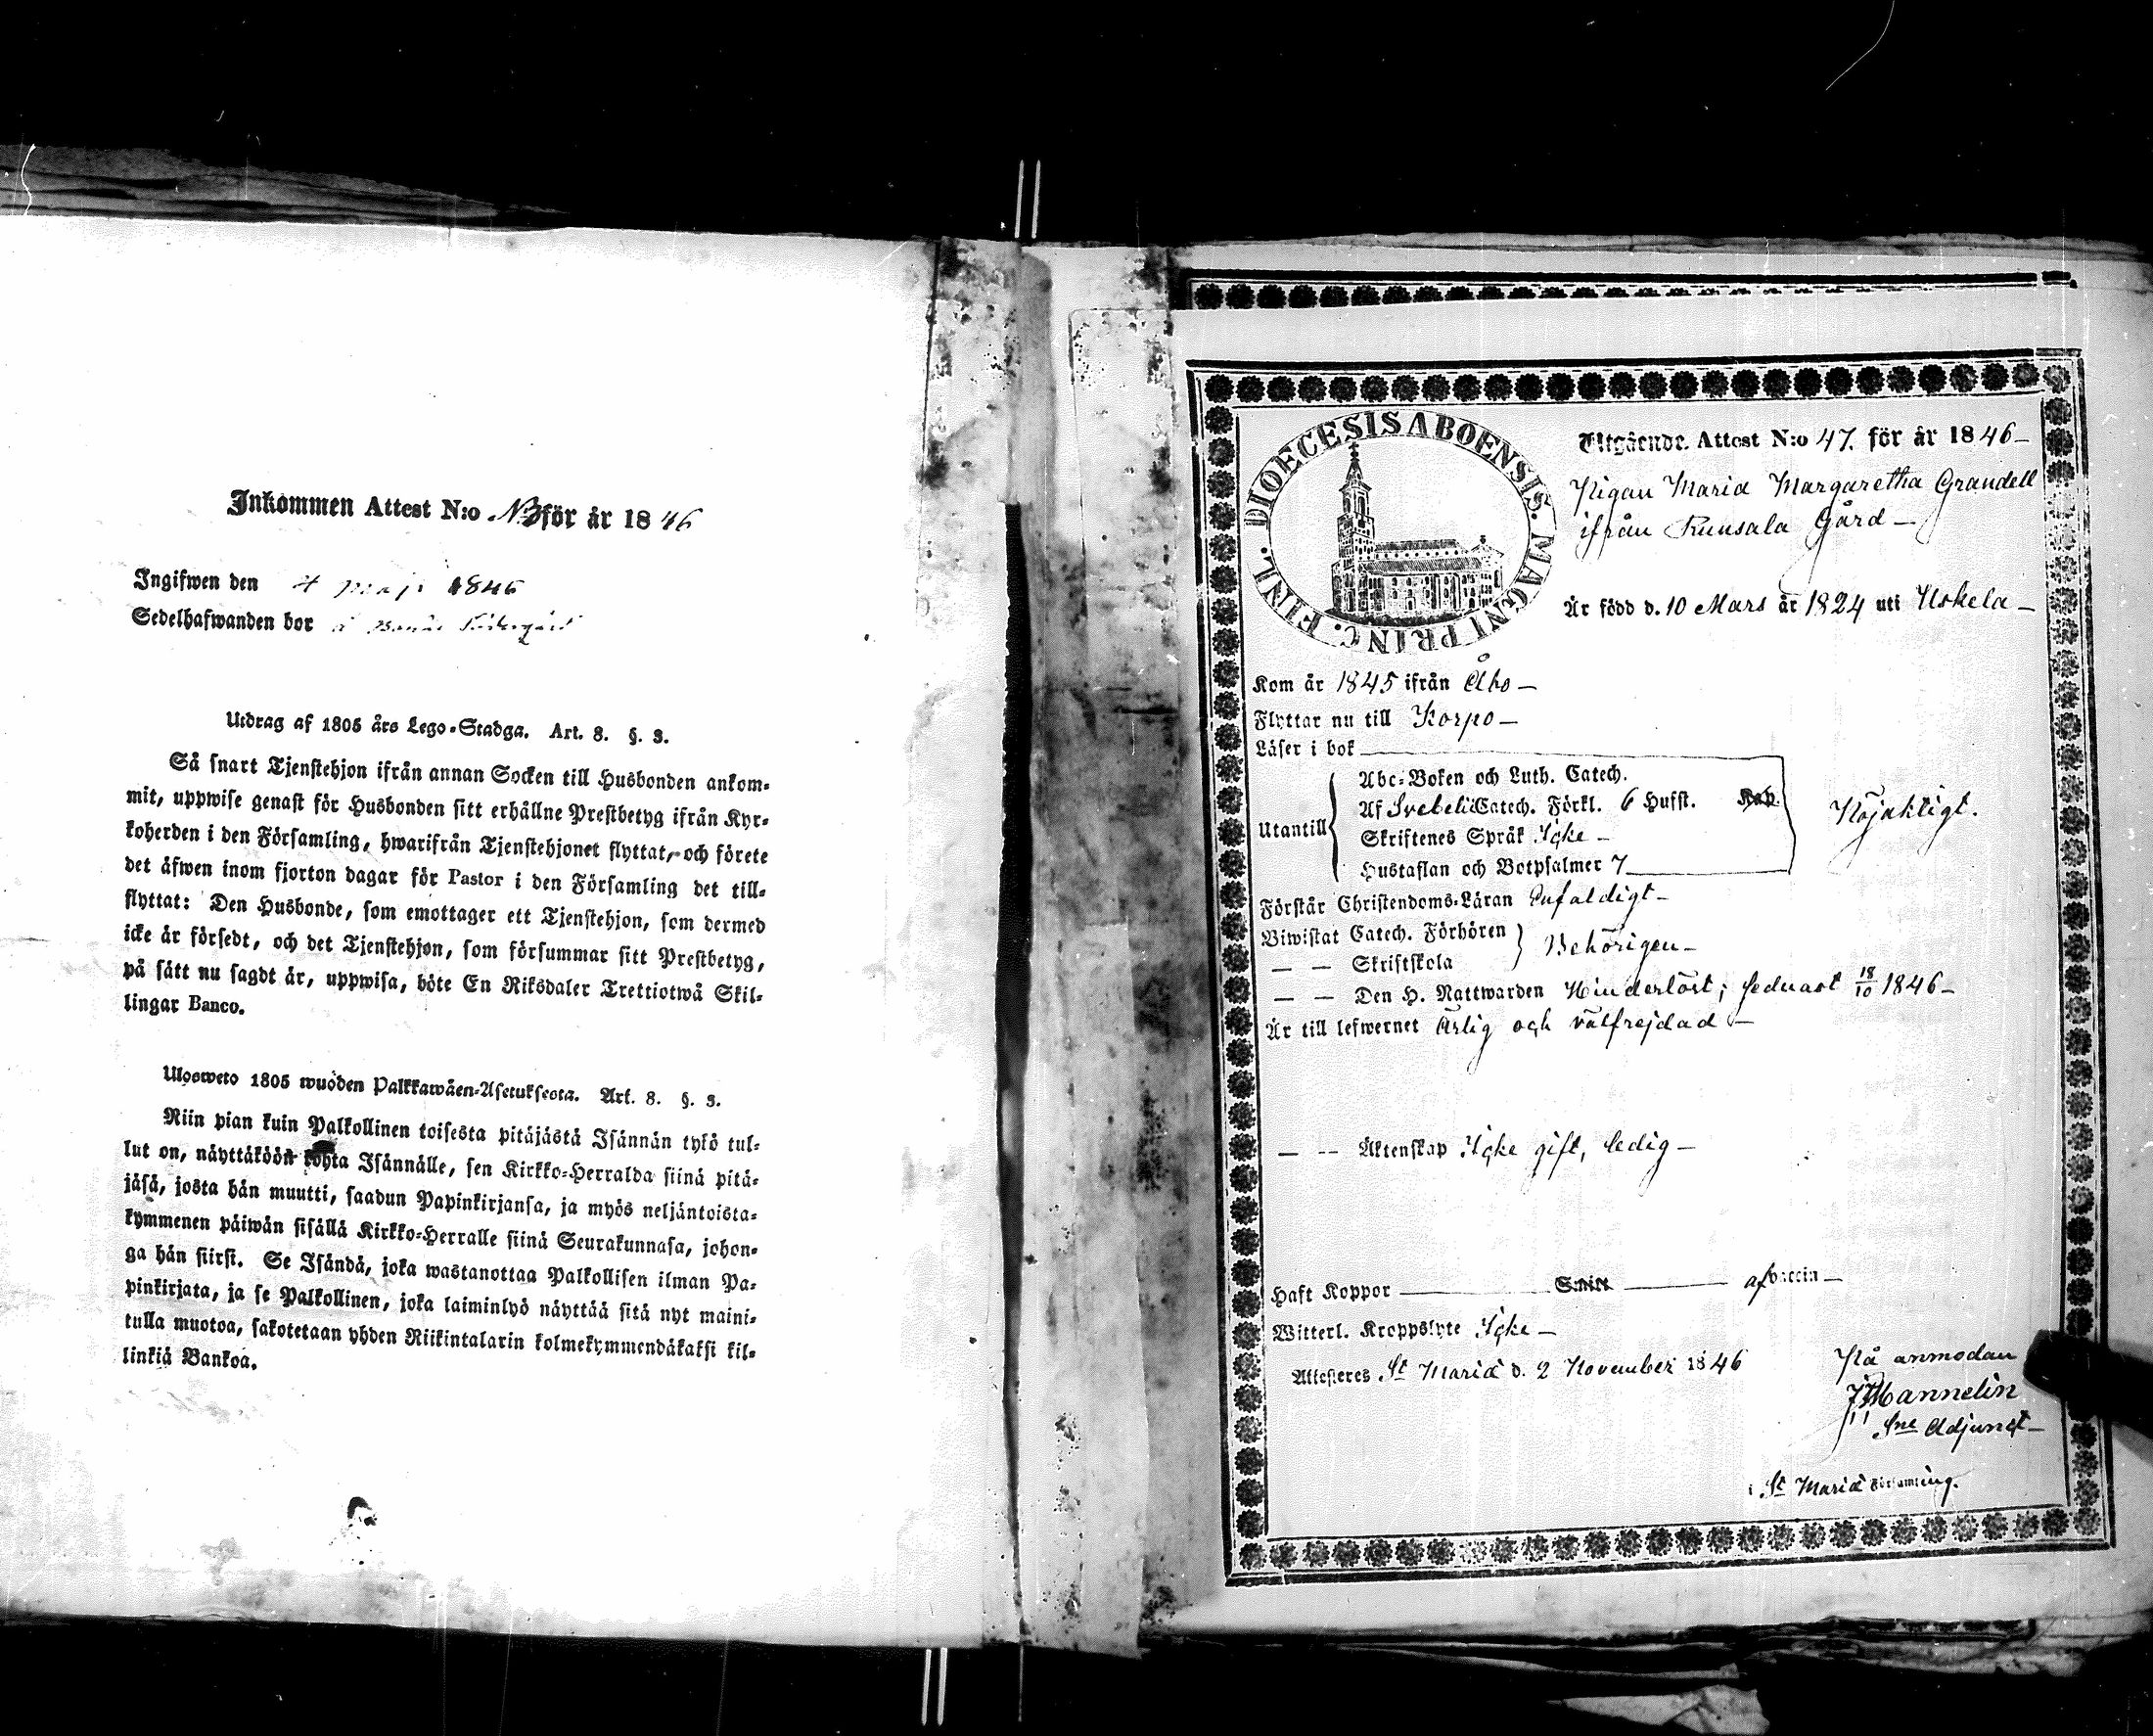 Inkommen Attest N:o för år 1846
Ingifwen den 4 maji 1846
Sedelhafwanden bor å
Utdrag af 1805 års Lego-Stadga. Art. 8. §. 3.
Så snart Tjenstehjon ifrån annan Socken till Husbonden ankom-
mit, uppwise genast för Husbonden sitt erhållne Prestbetyg ifrån Kyr-
koherden i den Församling, hwarifrån Tjenstehjonet flyttat, och förete
det äfwen inom fjorton dagar för Pastor i den Församling det till-
flyttat: Den Husbonde, som emottager ett Tjenstehjon, som dermed
icke är försedt, och det Tjenstehjon, som försummar sitt Prestbetyg,
på sätt nu sagdt är, uppwisa, böte En Riksdaler Trettiotwå Skil-
lingar Banco.
Ulosweto 1805 wuoden Palkkawäen-Asetuksesta. Art. 8. §. 3.
Niin pian kuin Palkollinen toisesta pitäjästä Isännän tykö tul-
lut on, näyttäköön kohta Isännälle, sen Kirkko-Herralda siinä pitä-
jäsä, josta hän muutti, saadun Papinkirjansa, ja myös neljäntoista-
kymmenen päiwän sisällä Kirkko-Herralle siinä Seurakunnasa, johon-
ga hän siirsi. Se Isändä, joka wastanottaa Palkollisen ilman Pa-
pinkirjata, ja se Palkollinen, joka laiminlyö näyttää sitä nyt maini-
tulla muotoa, sakotetaan yhden Riikintalarin kolmekymmendäkaksi kil-
linkiä Bankoa.
DIOECESIS ABOENSIS. MAGNI PRINC. FINL.
Utgående. Attest N:o 47. för år 1846-
Pigan Maria Margaretha Grandell
ifrån Runsala Gård-
Är född d. 10 Mars år 1824 uti Uskela-
Kom år 1845 ifrån Åbo-
Flyttar nu till Korpo-
Läser i bok
Abc-Boken och Luth. Catech.
Af Svebelii Catech. Förkl. 6 Hufst. Kap.
Utantill
Skriftenes Språk Icke-
Hustaflan och Botpsalmer 7
Nöjaktigt.
Förstår Christendoms-Läran Enfaldigt-
Biwistat Catech. Förhören
— — Skriftskola
Behörigen-
— — Den H. Nattwarden Hinderlöst; sednast 18/10 1846-
Är till lefwernet Ärlig och välfrejdad-
— — Äktenskap Icke gift, ledig-
Haft Koppor Smitt af vaccin-
Witterl. Kroppslyte Icke-
Attesteres St Mariæ d. 2 November 1846
På anmodan
Mannelin
Sne Adjunct-
i St Mariæ Församling.